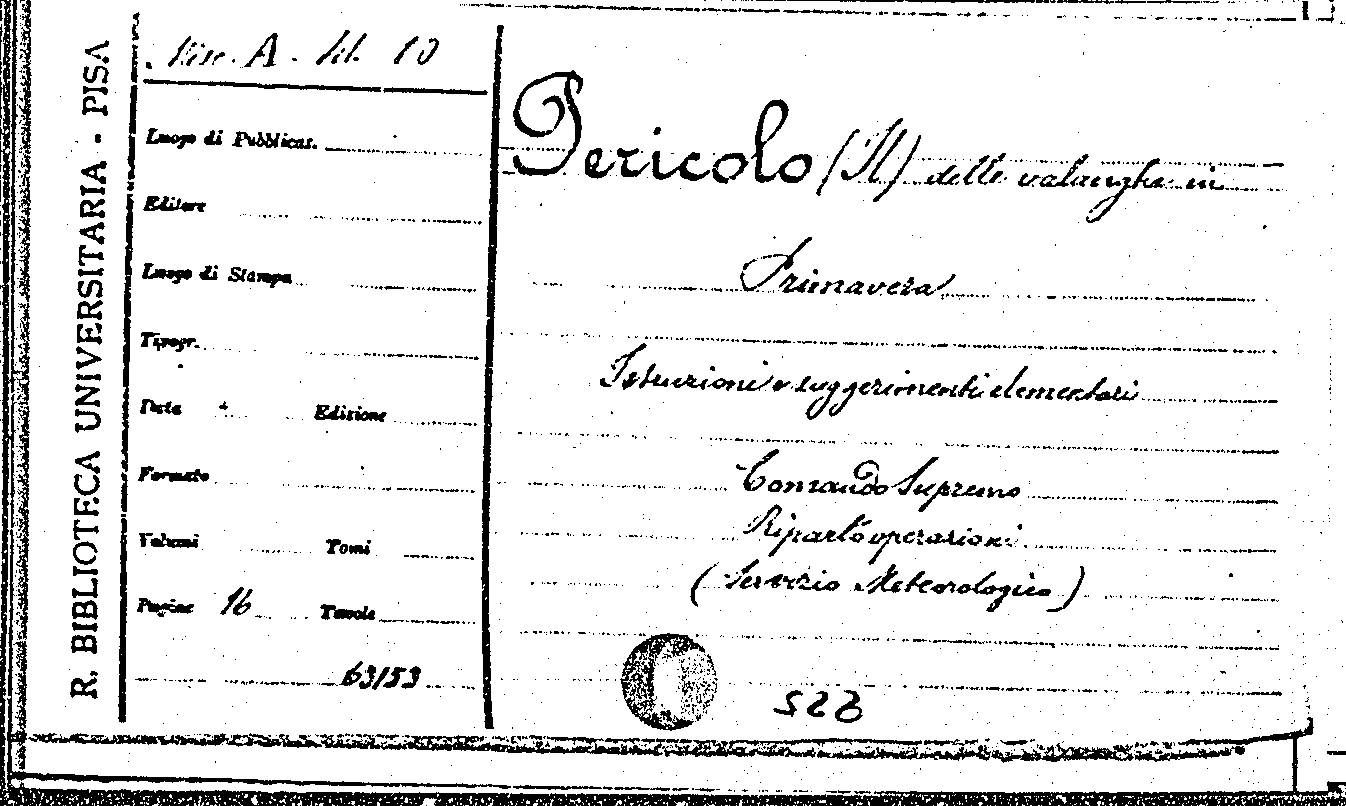 R. BIBLIOTECA UNIVERSITARIA - PISA
Misc. A. 10
Luogo di Pubblicaz.
Editore
Luogo di Stampa
Tipogr.
Data Edizione
Formato
Volumi Tomi
Pagine 16 Tavole
63153
Pericolo (Il) delle valanghe in
Primavera
Istruzioni e suggerimenti elementari
Comando Supremo
Riparto operazioni
(Servizio Meteorologico)